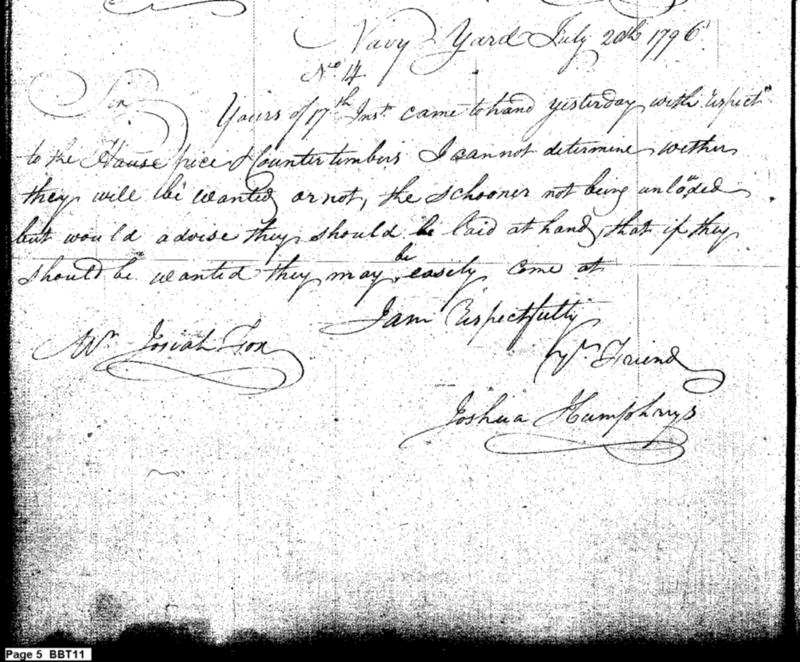 Navy Yard July 20th 1796
No 14
Sir
Yours of 17th Inst came to hand yesterday with respect
to the Hause pice & Counter timbers I cannot determine wether
they will be wanted or not, the schooner not being unloaded
but would advise they should be laid at hand that if they
should be wanted they may be easily come at
I am respectfully
Mr Josiah Fox
Yr Friend
Joshua Humphrys
Page 5 BBT11